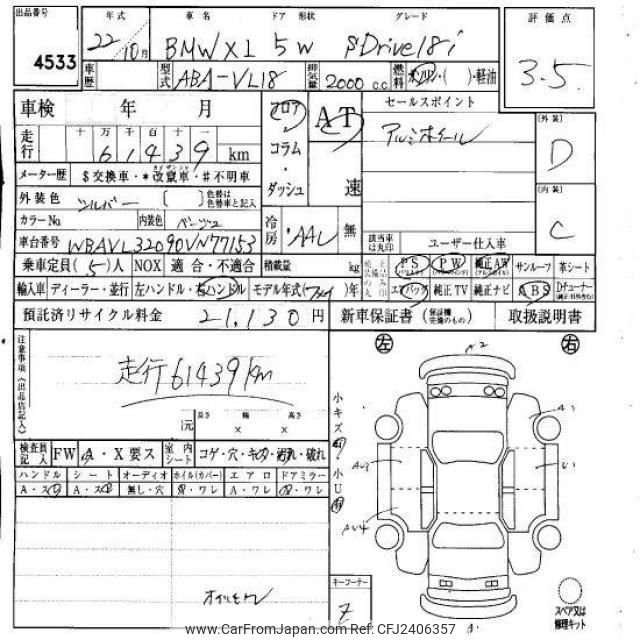 出品番号 年式 車名 ドア 形状 グレード 評価点
4533 22/10月 BMW X1 5W sDrive18i 3.5
車歴 型式 ABA-VL18 排気量 2000 c.c. 燃料 ガソリン・( )・軽油
車検 年 月 フロア AT セールスポイント [外装]
走行 十 万 千 百 十 一 コラム アルミホイール D
61439 km ・
メーター歴 $交換車・*改竄車・#不明車 ダッシュ 速 [内装]
外装色 シルバー ( ) 色替は色替車と記入 C
カラーNo 内装色 ベージュ 冷房 AAC 無
車台番号 WBAVL32090VN77153 該当車は丸印 ユーザー仕入車
乗車定員(5)人 NOX 適合・不適合 積載量 kg PS PW 純正AW サンルーフ 革シート
輸入車 ディーラー・並行 左ハンドル・右ハンドル モデル年式( )年 エアバッグ 純正TV 純正ナビ ABS Dチューナー
預託済リサイクル料金 21,130円 新車保証書 (保証継完備のもの) 取扱説明書
注意事項(出品店記入) 走行61439km
左 右
A2
長さ 幅 高さ
元 × ×
小キズ 小U
A1
AU3 U1
AU4
検査員記入 FW A・X要ス 室内シート コゲ・穴・キズ・汚れ・破れ
ハンドル シート オーディオ ホイル(カバー) エアロ ドアミラー
A・ス A・ス 無し・穴 ・ワレ A・ワレ ・ワレ
キーコーナー
Z
スペア又は修理キット
www.CarFromJapan.com Ref:CFJ2406357